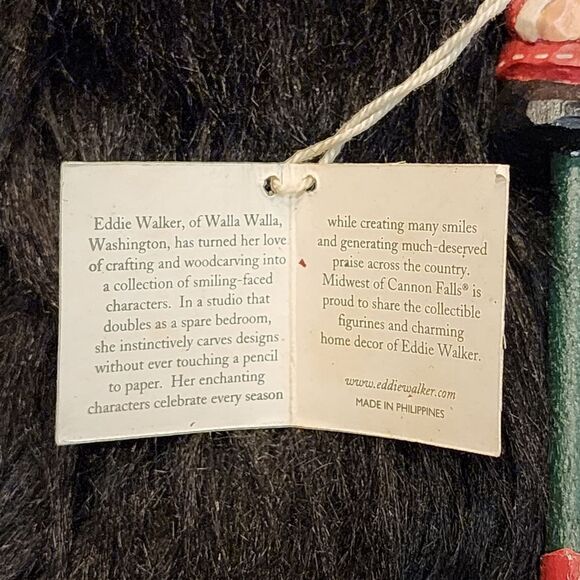 Eddie Walker, of Walla Walla,
Washington, has turned her love
of crafting and woodcarving into
a collection of smiling-faced
characters. In a studio that
doubles as a spare bedroom,
she instinctively carves designs
without ever touching a pencil
to paper. Her enchanting
characters celebrate every season
while creating many smiles
and generating much-deserved
praise across the country.
Midwest of Cannon Falls® is
proud to share the collectible
figurines and charming
home decor of Eddie Walker.
www.eddiewalker.com
MADE IN PHILIPPINES